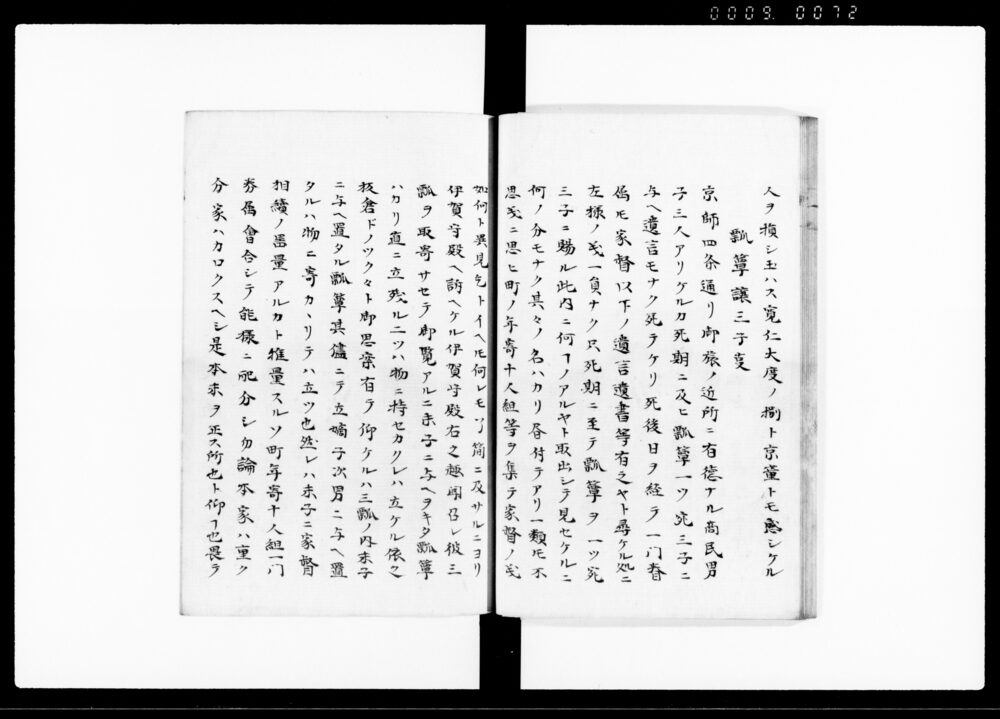 0009 0072
人ヲ損シ玉ハス寛仁大度ノ捌ト京童トモ感シケル
瓢簞讓三子叓
京師四条通リ御旅ノ近所ニ有德ナル商民男
子三人アリケルカ死期ニ及ヒ瓢簞一ツ宛三子ニ
与ヘ遺言モナク死テケリ死後日ヲ経テ一門眷
属モ家督以下ノ遺言遺書等有之ヤト尋ケル処ニ
左様ノ㕝一負ナク只死期ニ至テ瓢簞ヲ一ツ宛
三子ニ賜ル此内ニ何ヿノアルヤト取出シテ見セケルニ
何ノ分モナク其々ノ名ハカリ昼付テアリ一類モ不
思㕝ニ思ヒ町ノ年寄十人組等ヲ集テ家督ノ㕝
如何ト異見乞トイヘ𪜈何レモ了簡ニ及サルニヨリ
伊賀守殿ヘ訴ヘケル伊賀守殿右之趣聞召レ彼三
瓢ヲ取寄サセテ御覧アルニ末子ニ与ヘヲキタ瓢簞
ハカリ直ニ立残ル二ツハ物ニ持セカケレハ立ケル依之
板倉ドノツク々ト御思案有テ仰ケルハ三瓢ノ内末子
ニ与ヘ置タル瓢簞其儘ニテ立嫡子次男ニ与ヘ置
タルハ物ニ寄カヽリテハ立ツ也然レハ末子ニ家督
相續ノ噐量アルカト推量スルソ町年寄十人組一門
眷属會合シテ能様ニ配分シ勿論本家ハ重ク
分家ハカロクスヘシ是本末ヲ正ス所也ト仰ヿ也畏テ